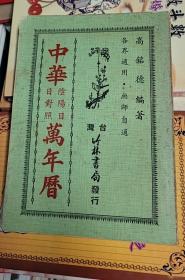 高銘德編著
各界適用・無師自通
台灣竹林書局發行
陰陽日日對照
中華萬年曆